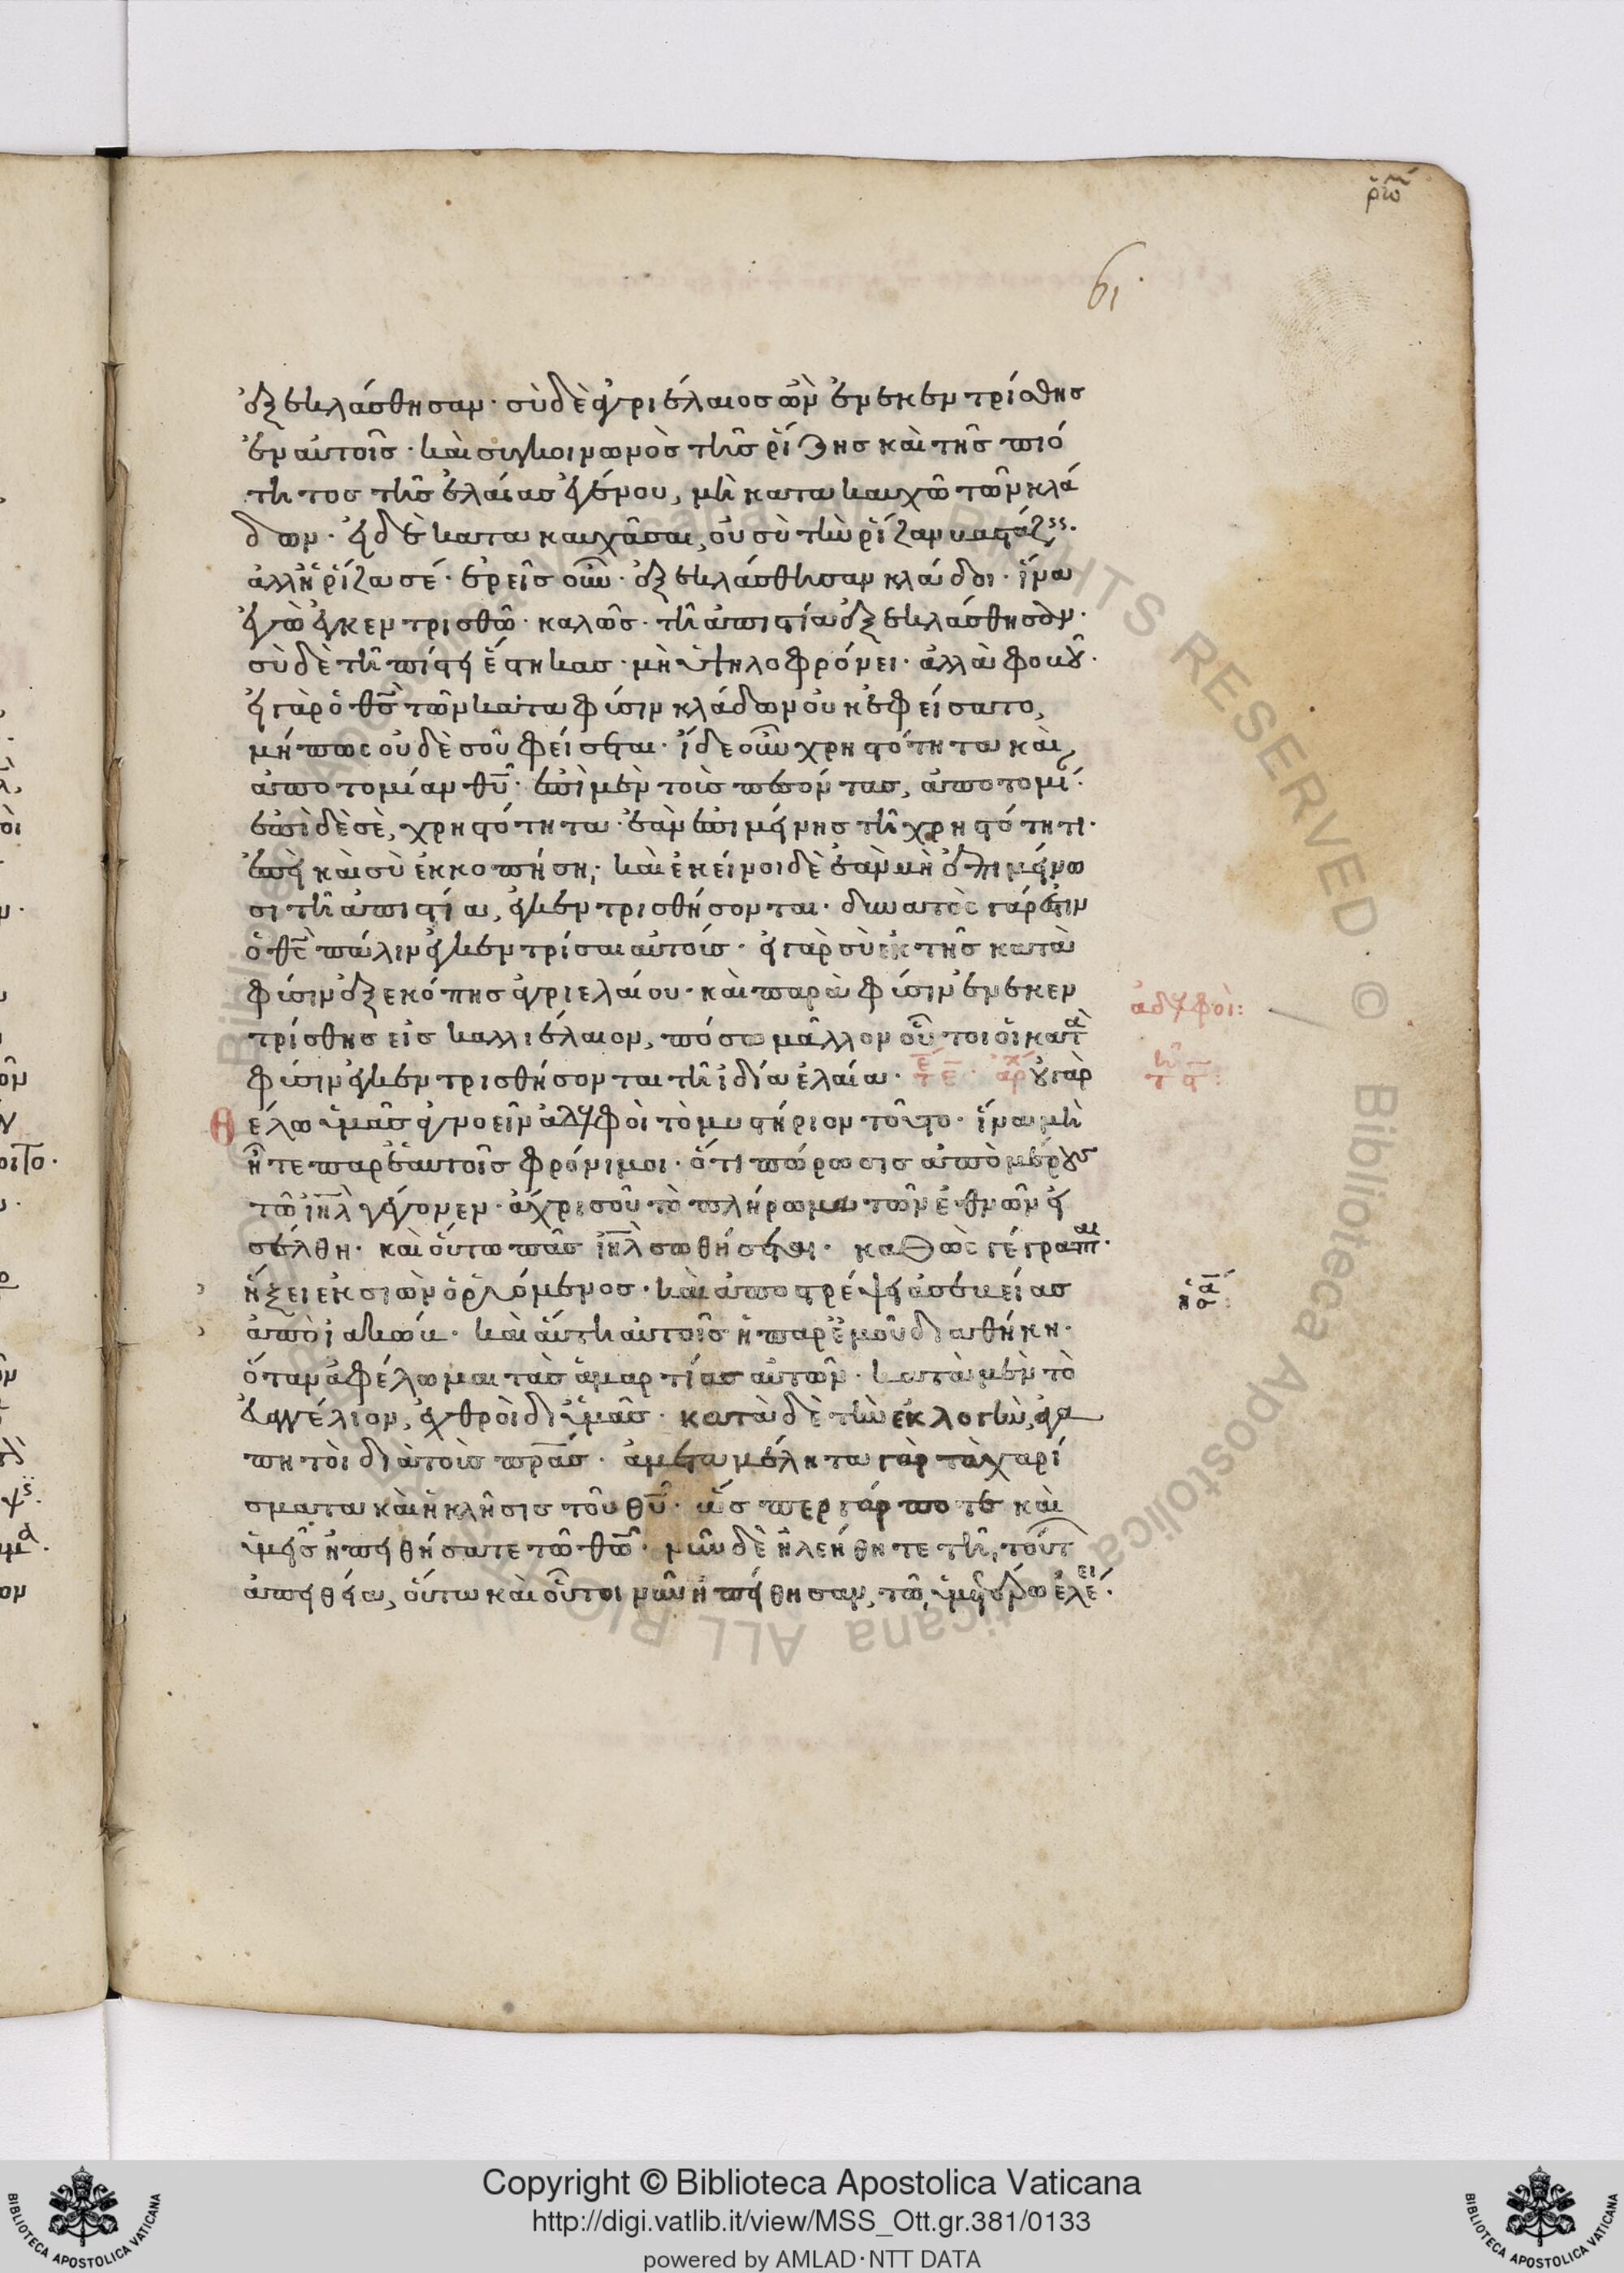 61
ἐξεκλάσθησαν· σὺ δὲ ἀγριέλαιος ὢν ἐνεκεντρίσθης
ἐν αὐτοῖς· καὶ συγκοινωνὸς τῆς ῥίζης καὶ τῆς πιό
τητος τῆς ἐλαίας ἐγένου, μὴ κατακαυχῶ τῶν κλά
δων· εἰ δὲ κατακαυχᾶσαι, οὐ σὺ τὴν ῥίζαν βαστάζεις·
ἀλλ' ἡ ῥίζα σέ· ἐρεῖς οὖν· ἐξεκλάσθησαν κλάδοι· ἵνα
ἐγὼ ἐγκεντρισθῶ· καλῶς· τῆ ἀπιστία ἐξεκλάσθησαν·
σὺ δὲ τῆ πίστει ἕστηκας· μὴ ὑψηλοφρόνει· ἀλλὰ φοβοῦ·
εἰ γὰρ ὁ θς τῶν κατὰ φύσιν κλάδων οὐκ ἐφείσατο,
μήπως οὐδὲ σοῦ φείσεται· ἴδε οὖν χρηστότητα καὶ
ἀποτομίαν θυ· ἐπὶ μὲν τοὺς πεσόντας, ἀποτομί·
ἐπὶ δὲ σὲ, χρηστότητα· ἐὰν ἐπιμείνης τῆ χρηστότητι·
ἐπεὶ καὶ σὺ ἐκκοπήση· καὶ ἐκείνοι δὲ ἐὰν μὴ ἐπιμείνω
σι τῆ ἀπιστία, ἐγκεντρισθήσονται· δυνατὸς γάρ ἐστιν
ὁ θς πάλιν ἐγκεντρίσαι αὐτούς· εἰ γὰρ σὺ ἐκ τῆς κατὰ
φύσιν ἐξεκόπης ἀγριελαίου· καὶ παρὰ φύσιν ἐνεκεν
τρίσθης εἰς καλλιέλαιον, πόσω μᾶλλον οὗτοι οἱ κατὰ
φύσιν ἐγκεντρισθήσονται τῆ ἰδία ἐλαία· οὐ γὰρ
θέλω ὑμᾶς ἀγνοεῖν ἀδελφοὶ τὸ μυστήριον τοῦτο· ἵνα μὴ
ἦτε παρ' ἑαυτοῖς φρόνιμοι· ὅτι πώρωσις ἀπὸ μέρους
τῶ ιηλ γέγονεν· ἄχρις οὗ τὸ πλήρωμα τῶν ἐθνῶν εἰ
σέλθη· καὶ οὕτω πᾶς ιηλ σωθήσεται· καθὼς γέγραπται·
ἥξει ἐκ σιὼν ὁ ῥυόμενος· καὶ ἀποστρέψει ἀσεβείας
ἀπὸ ἰακώβ· καὶ αὕτη αὐτοῖς ἡ παρ' ἐμοῦ διαθήκη·
ὅταν ἀφέλωμαι τὰς ἁμαρτίας αὐτῶν· κατὰ μὲν τὸ
εὐαγγέλιον, ἐχθροὶ δι' ὑμᾶς· κατὰ δὲ τὴν ἐκλογὴν, ἀγα
πητοὶ διὰ τοὺς πρας· ἀμεταμέλητα γὰρ τὰ χαρί
σματα καὶ ἡ κλῆσις τοῦ θυ· ὥσπερ γάρ ποτε καὶ
ὑμεῖς ἠπειθήσατε τῶ θω· νῦν δὲ ἠλεήθητε τῆ τούτ
ἀπειθεία, οὕτω καὶ οὗτοι νῦν ἠπείθησαν, τῶ ὑμετέρω ἐλέει·
ἀδελφοὶ:
ησα:
Copyright © Biblioteca Apostolica Vaticana
http://digi.vatlib.it/view/MSS_Ott.gr.381/0133
powered by AMLAD·NTT DATA
BIBLIOTECA APOSTOLICA VATICANA
BIBLIOTECA APOSTOLICA VATICANA